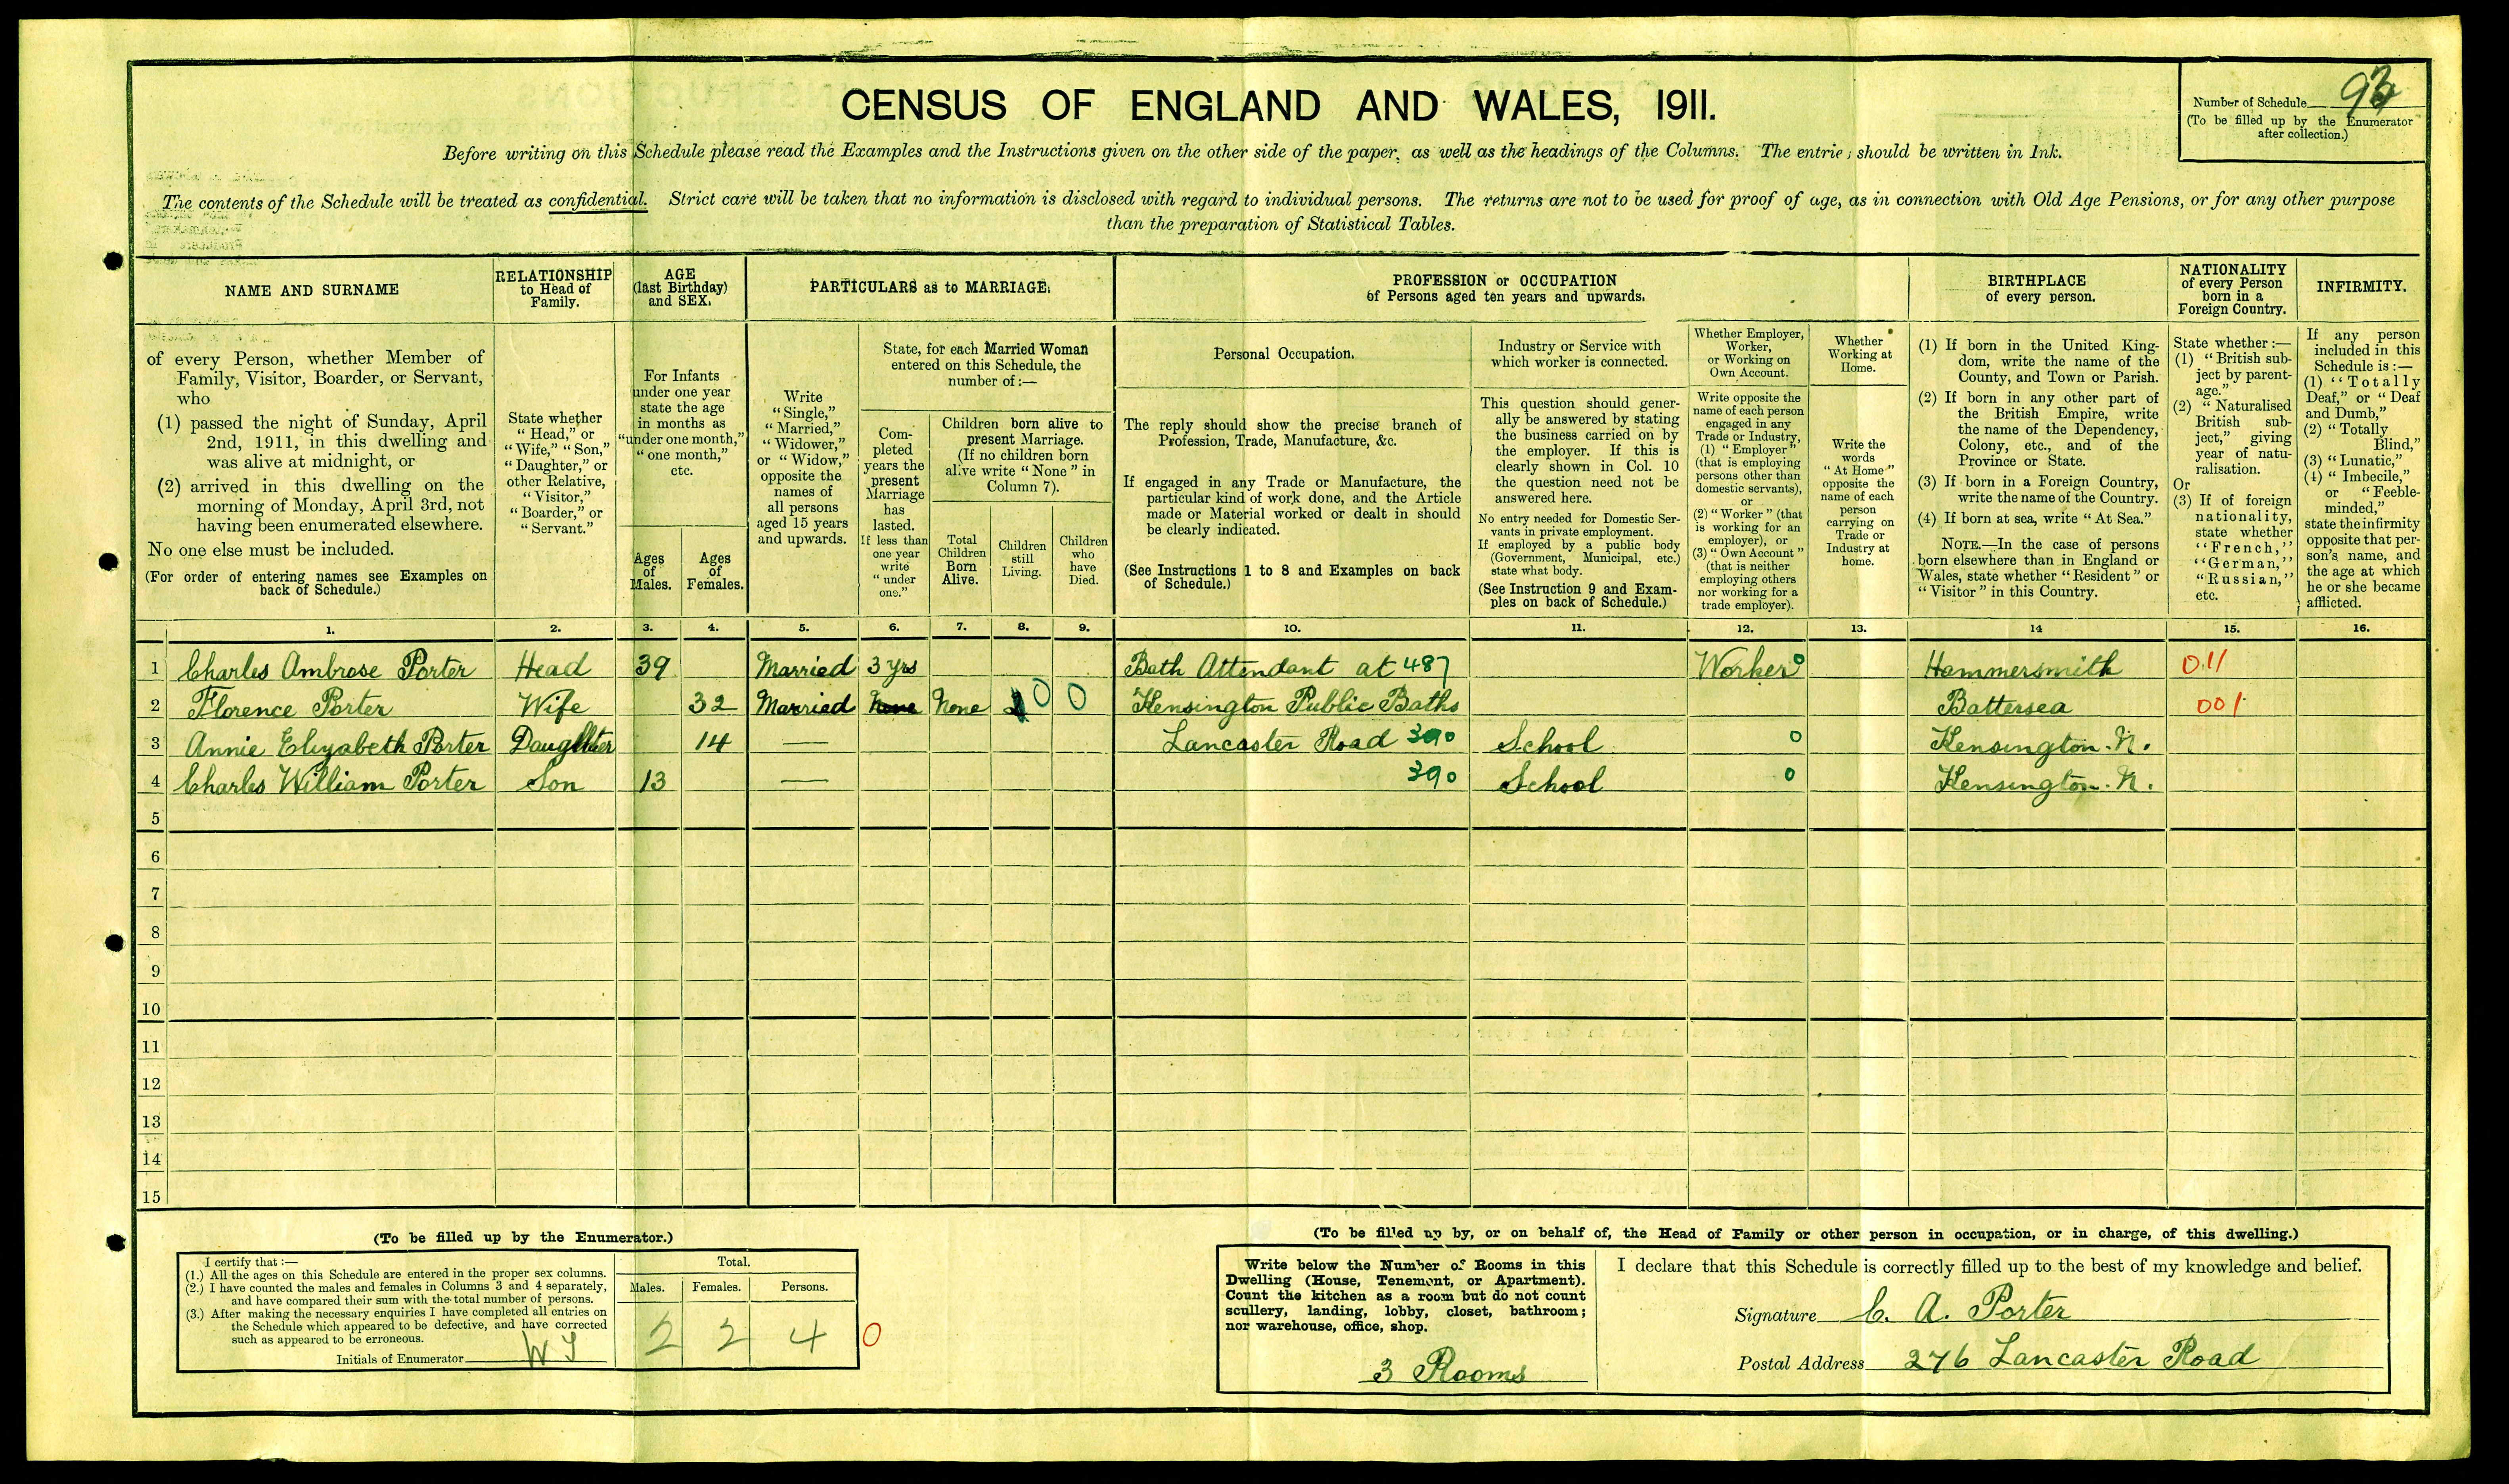 CENSUS OF ENGLAND AND WALES, 1911.
Number of Schedule
(To be filled up by the Enumerator
after collection.)
Before writing on this Schedule please read the Examples and the Instructions given on the other side of the paper, as well as the headings of the Columns. The entries should be written in Ink.
The contents of the Schedule will be treated as confidential. Strict care will be taken that no information is disclosed with regard to individual persons. The returns are not to be used for proof of age, as in connection with Old Age Pensions, or for any other purpose
than the preparation of Statistical Tables.
NAME AND SURNAME
of every Person, whether Member of
Family, Visitor, Boarder, or Servant,
who
(1) passed the night of Sunday, April
2nd, 1911, in this dwelling and
was alive at midnight, or
(2) arrived in this dwelling on the
morning of Monday, April 3rd, not
having been enumerated elsewhere.
No one else must be included.
(For order of entering names see Examples on
back of Schedule.)
RELATIONSHIP
to Head of
Family.
State whether
“Head,” or
“Wife,” “Son,”
“Daughter,” or
other Relative,
“Visitor,”
“Boarder,” or
“Servant.”
AGE
(last Birthday)
and SEX.
For Infants
under one year
state the age
in months as
“under one month,”
“one month,”
etc.
Ages
of
Males.
Ages
of
Females.
PARTICULARS as to MARRIAGE.
Write
“Single,”
“Married,”
“Widower,”
or “Widow,”
opposite the
names of
all persons
aged 15 years
and upwards.
State, for each Married Woman
entered on this Schedule, the
number of:—
Com-
pleted
years the
present
Marriage
has
lasted.
If less than
one year
write
“under
one.”
Children born alive to
present Marriage.
(If no children born
alive write “None” in
Column 7).
Total
Children
Born
Alive.
Children
still
Living.
Children
who
have
Died.
PROFESSION or OCCUPATION
of Persons aged ten years and upwards.
Personal Occupation.
The reply should show the precise branch of
Profession, Trade, Manufacture, &c.
If engaged in any Trade or Manufacture, the
particular kind of work done, and the Article
made or Material worked or dealt in should
be clearly indicated.
(See Instructions 1 to 8 and Examples on back
of Schedule.)
Industry or Service with
which worker is connected.
This question should gener-
ally be answered by stating
the business carried on by
the employer. If this is
clearly shown in Col. 10
the question need not be
answered here.
No entry needed for Domestic Ser-
vants in private employment.
If employed by a public body
(Government, Municipal, etc.)
state what body.
(See Instruction 9 and Exam-
ples on back of Schedule.)
Whether Employer,
Worker,
or Working on
Own Account.
Write opposite the
name of each person
engaged in any
Trade or Industry,
(1) “Employer”
(that is employing
persons other than
domestic servants),
or
(2) “Worker” (that
is working for an
employer), or
(3) “Own Account”
(that is neither
employing others
nor working for a
trade employer).
Whether
Working at
Home.
Write the
words
“At Home”
opposite the
name of each
person
carrying on
Trade or
Industry at
home.
BIRTHPLACE
of every person.
(1) If born in the United King-
dom, write the name of the
County, and Town or Parish.
(2) If born in any other part of
the British Empire, write
the name of the Dependency,
Colony, etc., and of the
Province or State.
(3) If born in a Foreign Country,
write the name of the Country.
(4) If born at sea, write “At Sea.”
NOTE.—In the case of persons
born elsewhere than in England or
Wales, state whether “Resident” or
“Visitor” in this Country.
NATIONALITY
of every Person
born in a
Foreign Country.
State whether:—
(1) “British sub-
ject by parent-
age.”
(2) “Naturalised
British sub-
ject,” giving
year of natu-
ralisation.
Or
(3) If of foreign
nationality,
state whether
“French,”
“German,”
“Russian,”
etc.
INFIRMITY.
If any person
included in this
Schedule is:—
(1) “Totally
Deaf,” or “Deaf
and Dumb,”
(2) “Totally
Blind,”
(3) “Lunatic,”
(4) “Imbecile,”
or “Feeble-
minded,”
state the infirmity
opposite that per-
son's name, and
the age at which
he or she became
afflicted.
1. 2. 3. 4. 5. 6. 7. 8. 9. 10. 11. 12. 13. 14 15. 16.
1 Charles Ambrose Porter Head 39 Married 3 yrs Bath Attendant at 487 Worker 0 Hammersmith 011
2 Florence Porter Wife 32 Married None None 0 0 Kensington Public Baths Battersea 001
3 Annie Elizabeth Porter Daughter 14 — Lancaster Road 390 School 0 Kensington. N.
4 Charles William Porter Son 13 — 390 School 0 Kensington. N.
5
6
7
8
9
10
11
12
13
14
15
(To be filled up by the Enumerator.)
I certify that:—
(1.) All the ages on this Schedule are entered in the proper sex columns.
(2.) I have counted the males and females in Columns 3 and 4 separately,
and have compared their sum with the total number of persons.
(3.) After making the necessary enquiries I have completed all entries on
the Schedule which appeared to be defective, and have corrected
such as appeared to be erroneous.
Initials of Enumerator
Total.
Males. Females. Persons.
2 2 4 0
(To be filled up by, or on behalf of, the Head of Family or other person in occupation, or in charge, of this dwelling.)
Write below the Number of Rooms in this
Dwelling (House, Tenement, or Apartment).
Count the kitchen as a room but do not count
scullery, landing, lobby, closet, bathroom;
nor warehouse, office, shop.
3 Rooms
I declare that this Schedule is correctly filled up to the best of my knowledge and belief.
Signature C. A. Porter
Postal Address 276 Lancaster Road